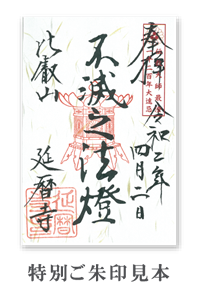 奉拝
令和二年
四月一日
不滅之法燈
比叡山
延暦寺
特別ご朱印見本